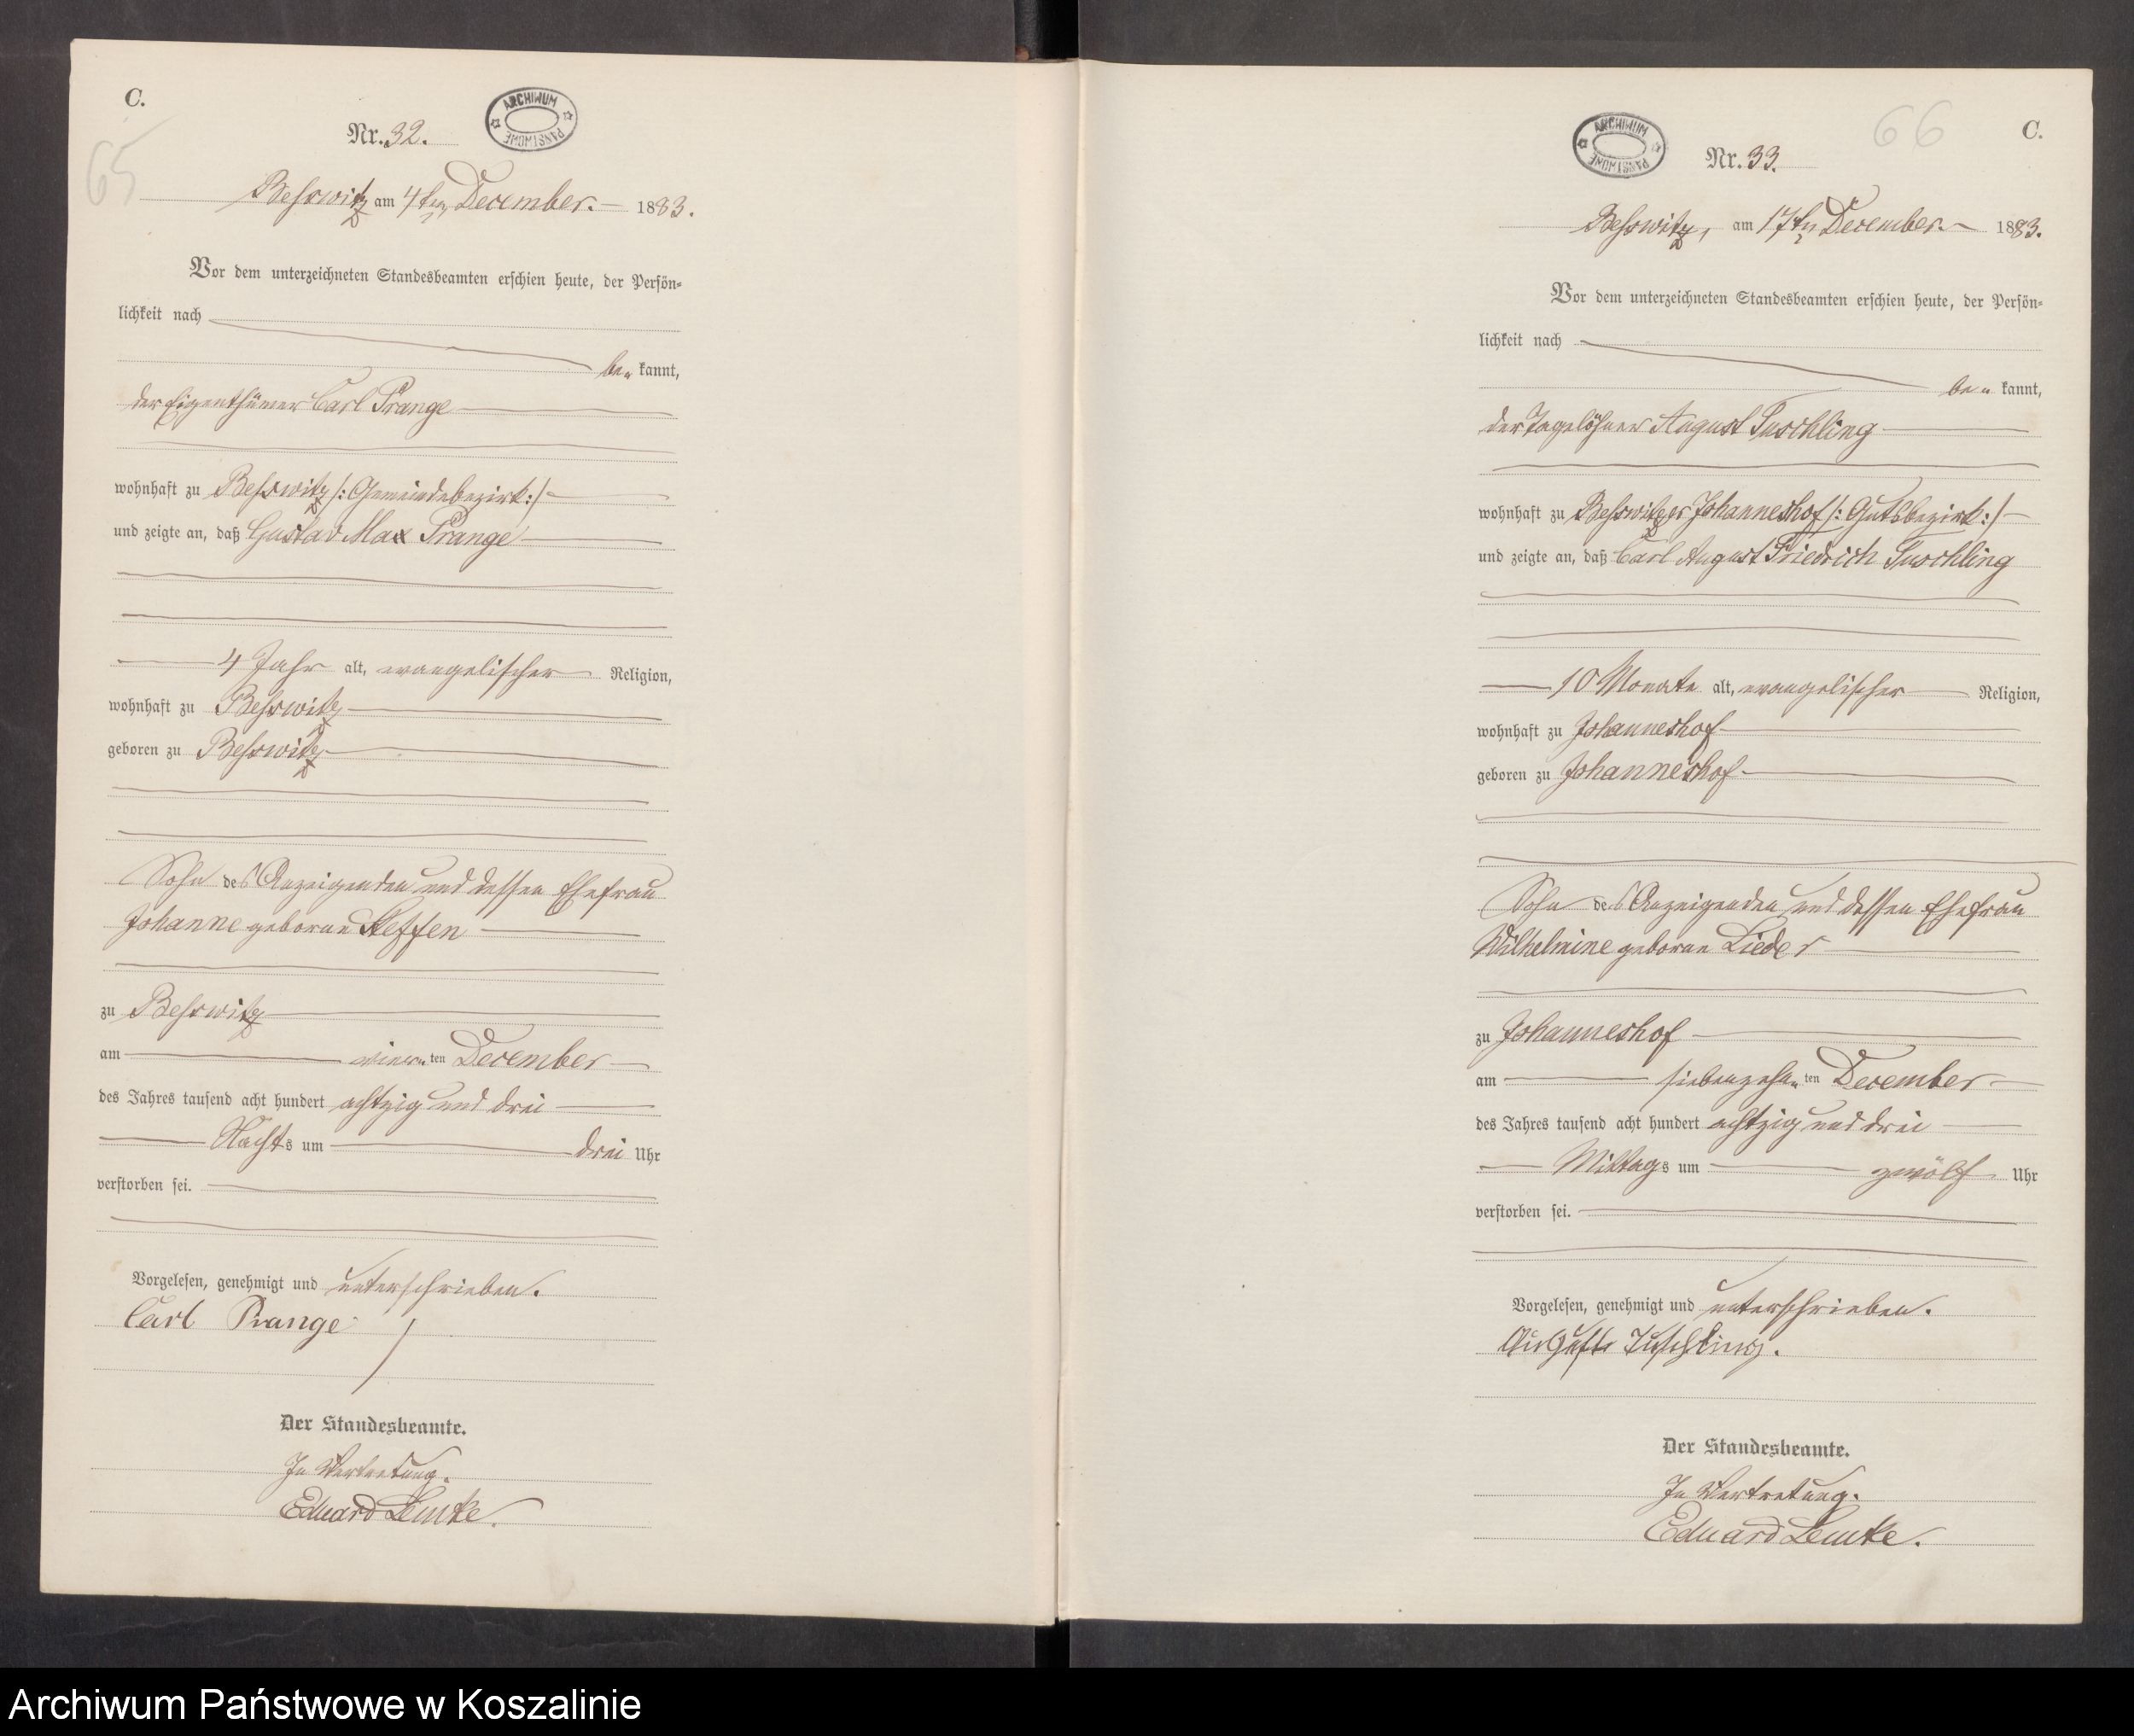 C.
65
Nr. 32.
ARCHIWUM PAŃSTWOWE
Besswitz am 4ten December. 1883.
Vor dem unterzeichneten Standesbeamten erschien heute, der Persön-
lichkeit nach
be- kannt,
der Eigenthümer Carl Prange
wohnhaft zu Besswitz /: Gemeindebezirk :/
und zeigte an, daß Gustav Max Prange
4 Jahr alt, evangelischer Religion,
wohnhaft zu Besswitz
geboren zu Besswitz
Sohn des Anzeigenden und dessen Ehefrau
Johanne geborne Steffen
zu Besswitz
am vierten December
des Jahres tausend acht hundert achtzig und drei
Nachts um drei Uhr
verstorben sei.
Vorgelesen, genehmigt und unterschrieben.
Carl Prange
Der Standesbeamte.
In Vertretung.
Eduard Lemke.
66
C.
ARCHIWUM PAŃSTWOWE
Nr. 33.
Besswitz, am 17ten December. 1883.
Vor dem unterzeichneten Standesbeamten erschien heute, der Persön-
lichkeit nach
be- kannt,
der Tagelöhner August Tuschling
wohnhaft zu Besswitzer Johanneshof /: Gutsbezirk :/
und zeigte an, daß Carl August Friedrich Tuschling
10 Monate alt, evangelischer Religion,
wohnhaft zu Johanneshof
geboren zu Johanneshof
Sohn des Anzeigenden und dessen Ehefrau
Wilhelmine geborne Lieder
zu Johanneshof
am siebenzehnten December
des Jahres tausend acht hundert achtzig und drei
Mittags um zwölf Uhr
verstorben sei.
Vorgelesen, genehmigt und unterschrieben.
August Tuschling.
Der Standesbeamte.
In Vertretung.
Eduard Lemke.
Archiwum Państwowe w Koszalinie